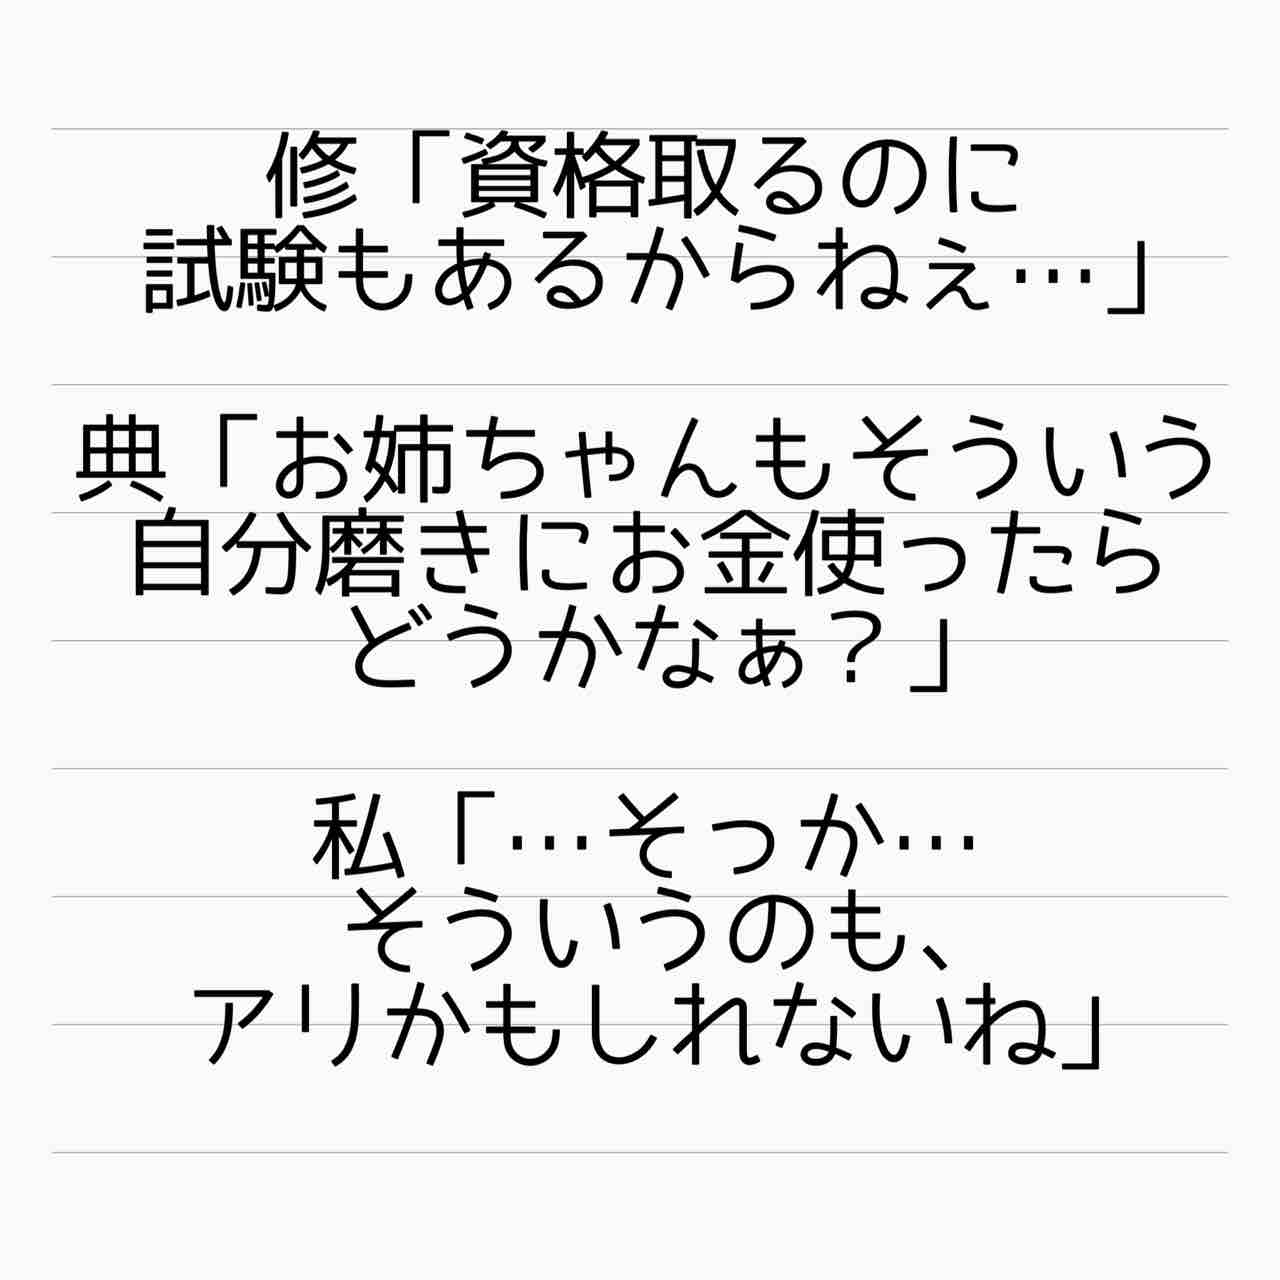 修「資格取るのに
試験もあるからねぇ…」
典「お姉ちゃんもそういう
自分磨きにお金使ったら
どうかなぁ？」
私「…そっか…
そういうのも、
アリかもしれないね」